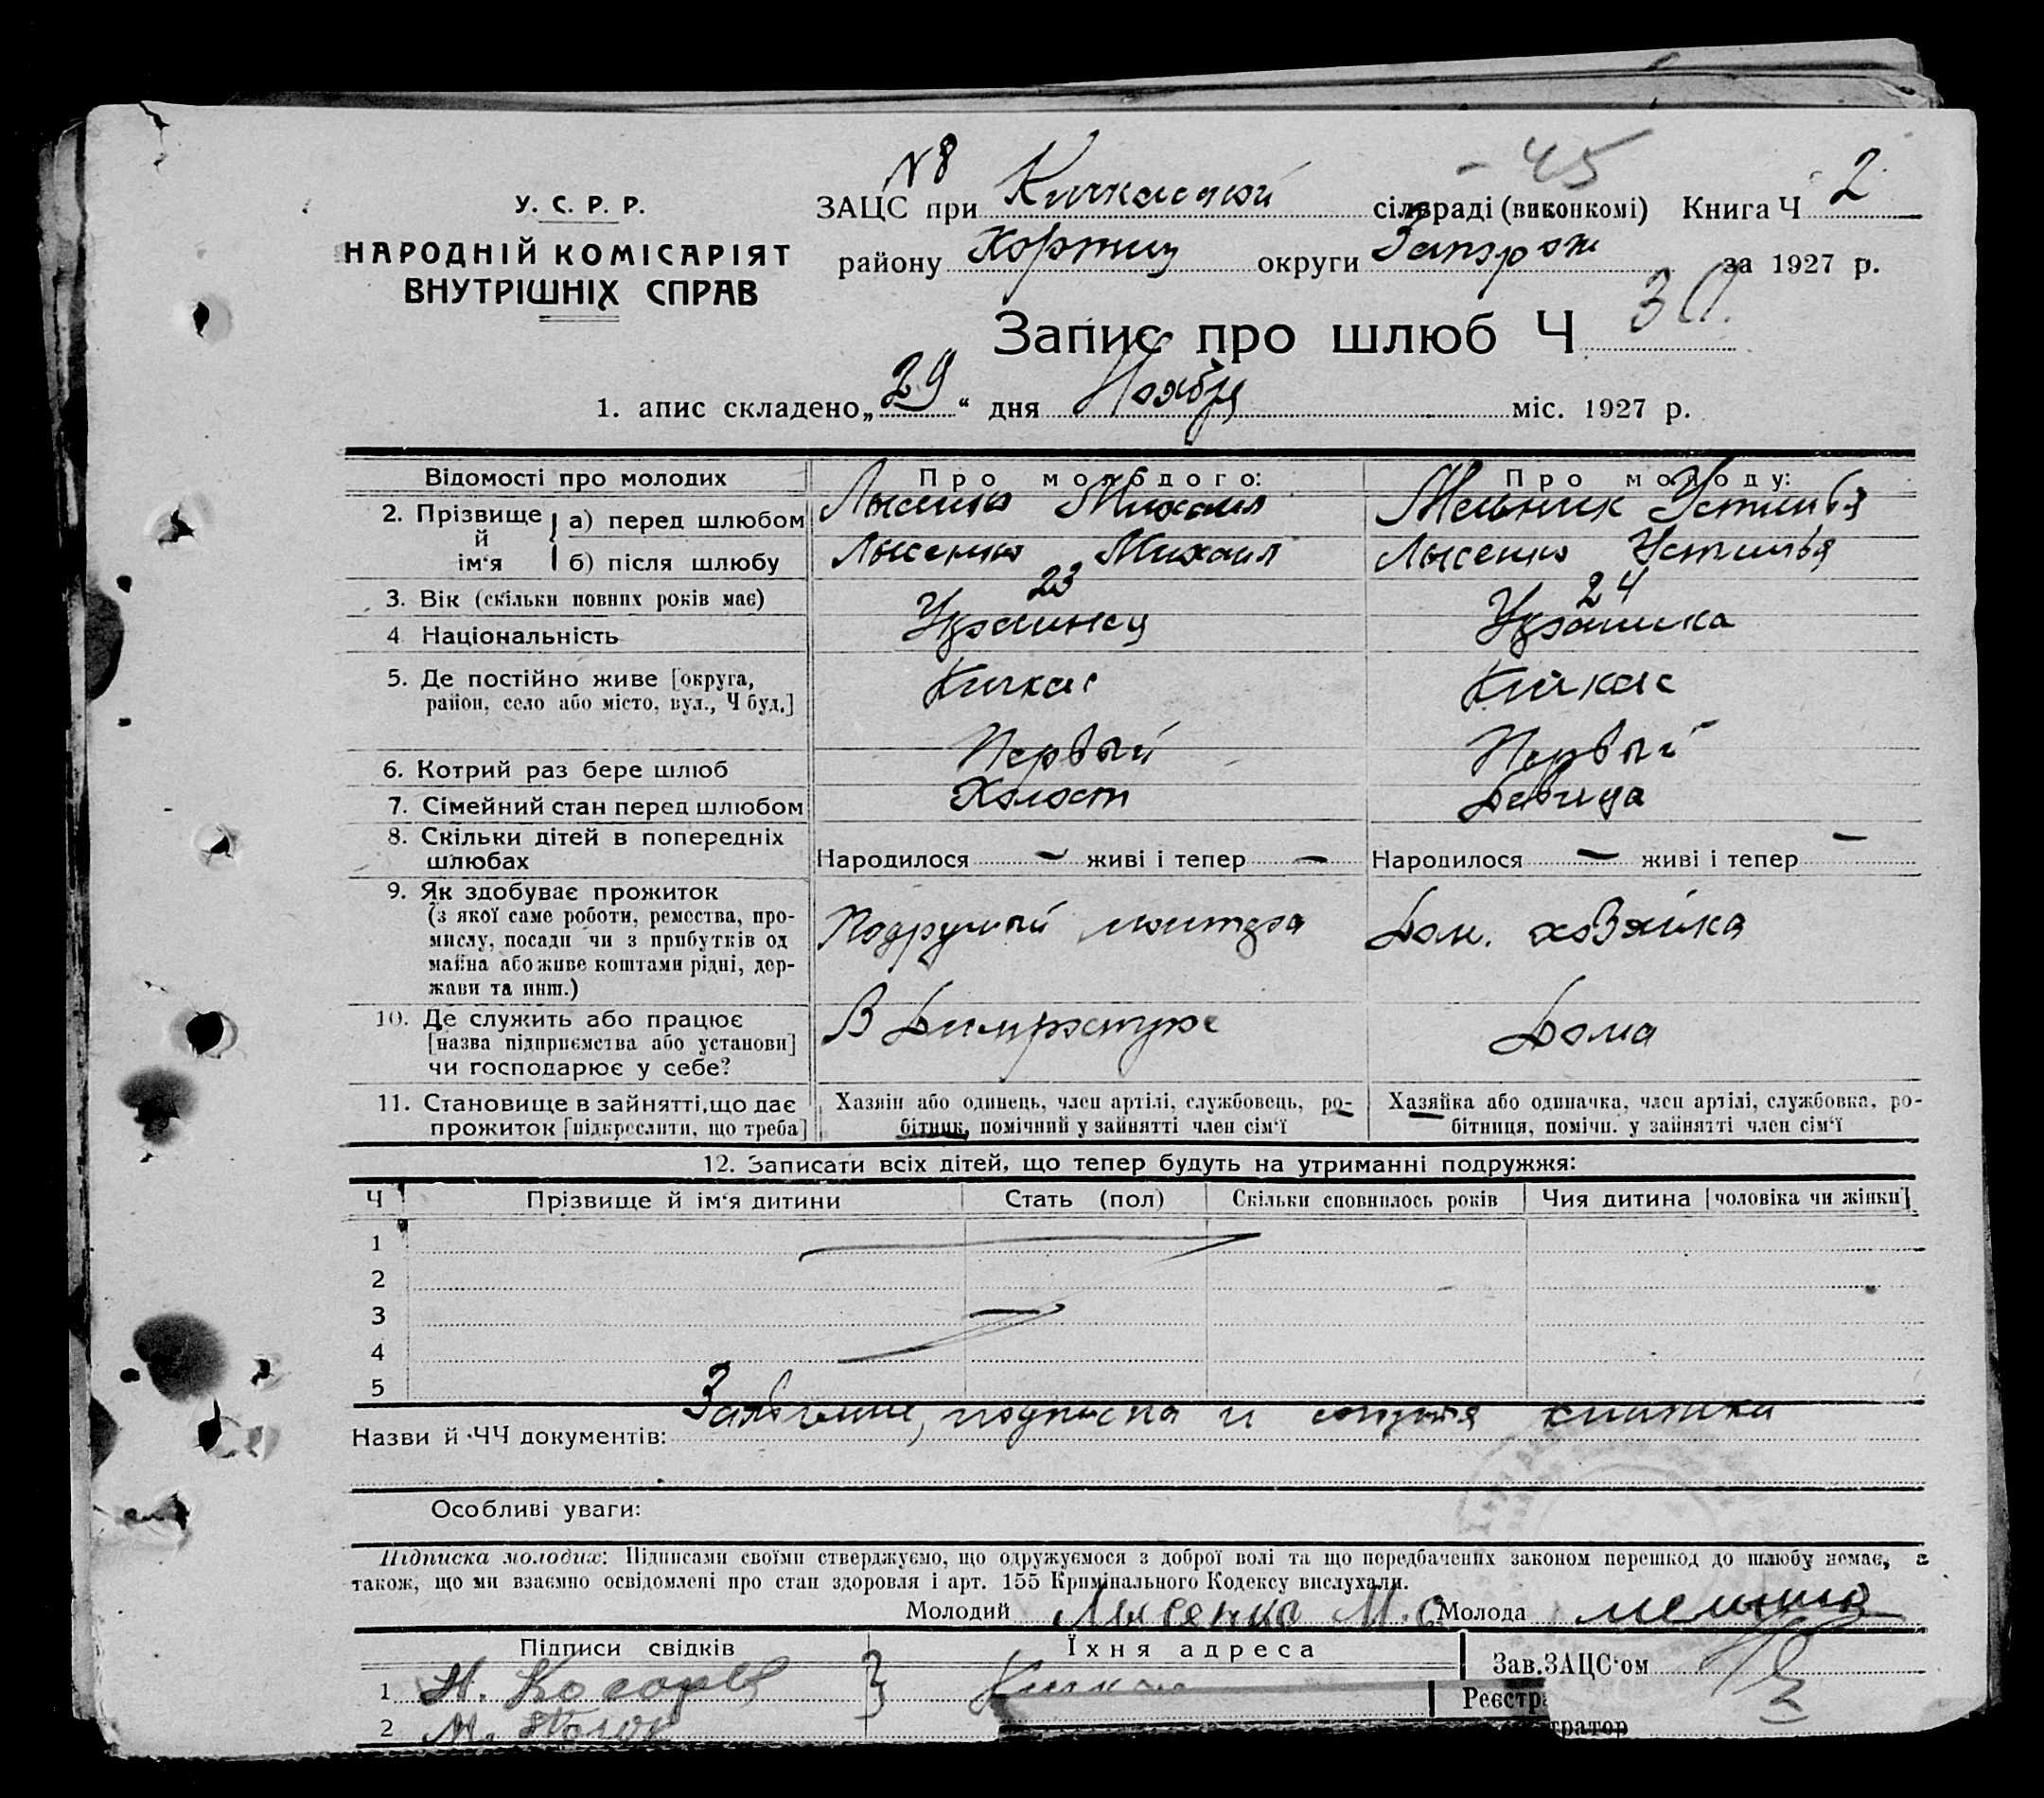 - 45
№ 8
У. С. Р. Р.
ЗАЦС при Кичкасской сільраді (виконкомі) Книга Ч 2
НАРОДНІЙ КОМІСАРІЯТ
ВНУТРІШНІХ СПРАВ
району Хортиц округи Запорож за 1927 р.
Запис про шлюб Ч 30.
1. апис складено „29“ дня Ноября міс. 1927 р.
Відомості про молодих Про молодого: Про молоду:
2. Прізвище й ім'я а) перед шлюбом Лысенко Михаил Мельник Устинья
б) після шлюбу Лысенко Михаил Лысенко Устинья
3. Вік (скільки повних років має) 23 24
4 Національність Украинец Украинка
5. Де постійно живе [округа, Кичкас Кичкас
район, село або місто, вул., Ч буд.]
6. Котрий раз бере шлюб Первый Первый
7. Сімейний стан перед шлюбом Холост Девица
8. Скільки дітей в попередніх
шлюбах Народилося — живі і тепер — Народилося — живі і тепер —
9. Як здобуває прожиток
(з якої саме роботи, ремества, про-
мислу, посади чи з прибутків од Подручный монтера Дом. хозяйка
майна або живе коштами рідні, дер-
жави та инш.)
10. Де служить або працює В Днепрострое Дома
[назва підприємства або установи]
чи господарює у себе?
11. Становище в зайнятті, що дає Хазяїн або одинець, член артілі, службовець, ро- Хазяйка або одиначка, член артілі, службовка, ро-
прожиток [підкреслити, що треба] бітник, помічний у зайнятті член сім'ї бітниця, помічн. у зайнятті член сім'ї
12. Записати всіх дітей, що тепер будуть на утриманні подружжя:
Ч Прізвище й ім'я дитини Стать (пол) Скільки сповнилось років Чия дитина [чоловіка чи жінки]
1
2
3
4
5
Заявление, подписка и книжки
Назви й ЧЧ документів:
Особливі уваги:
Підписка молодих: Підписами своїми стверджуємо, що одружуємося з доброї волі та що передбачених законом перешкод до шлюбу немає, а
також, що ми взаємно освідомлені про стан здоровля і арт. 155 Кримінального Кодексу вислухали.
Молодий Лисенко М. С. Молода
Підписи свідків Їхня адреса Зав.ЗАЦС'ом
1 Н. Кичкас
Реєстра
2 М.
тратор